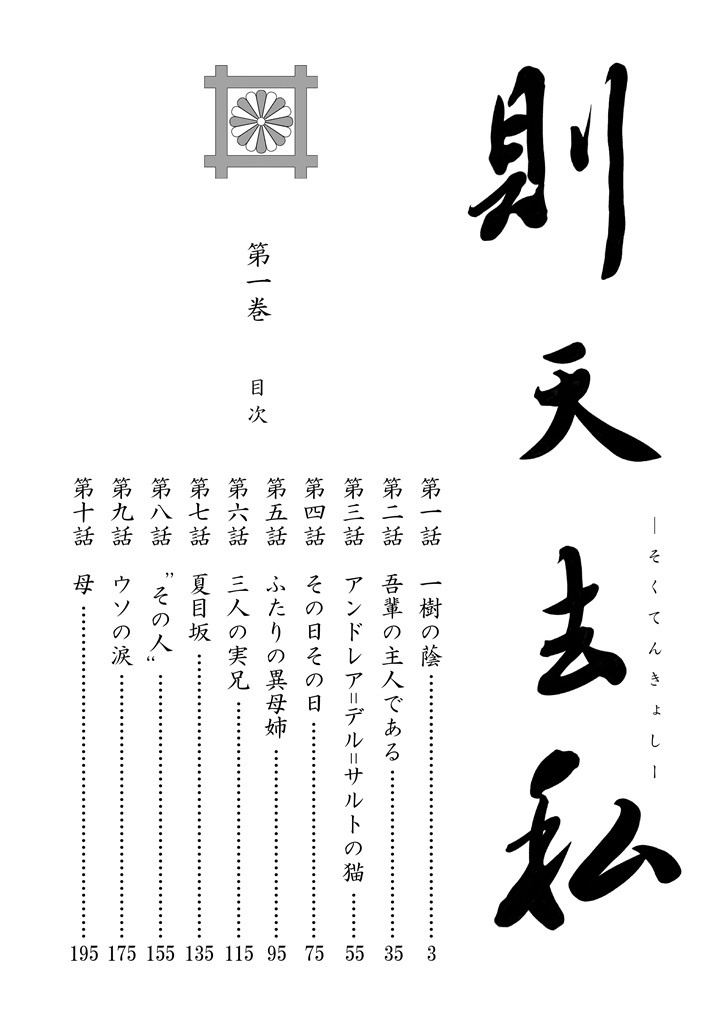 則天去私
―そくてんきょしー
第一巻 目次
第一話 一樹の蔭……3
第二話 吾輩の主人である……35
第三話 アンドレア=デル=サルトの猫……55
第四話 その日その日……75
第五話 ふたりの異母姉……95
第六話 三人の実兄……115
第七話 夏目坂……135
第八話 〝その人〟……155
第九話 ウソの涙……175
第十話 母……195